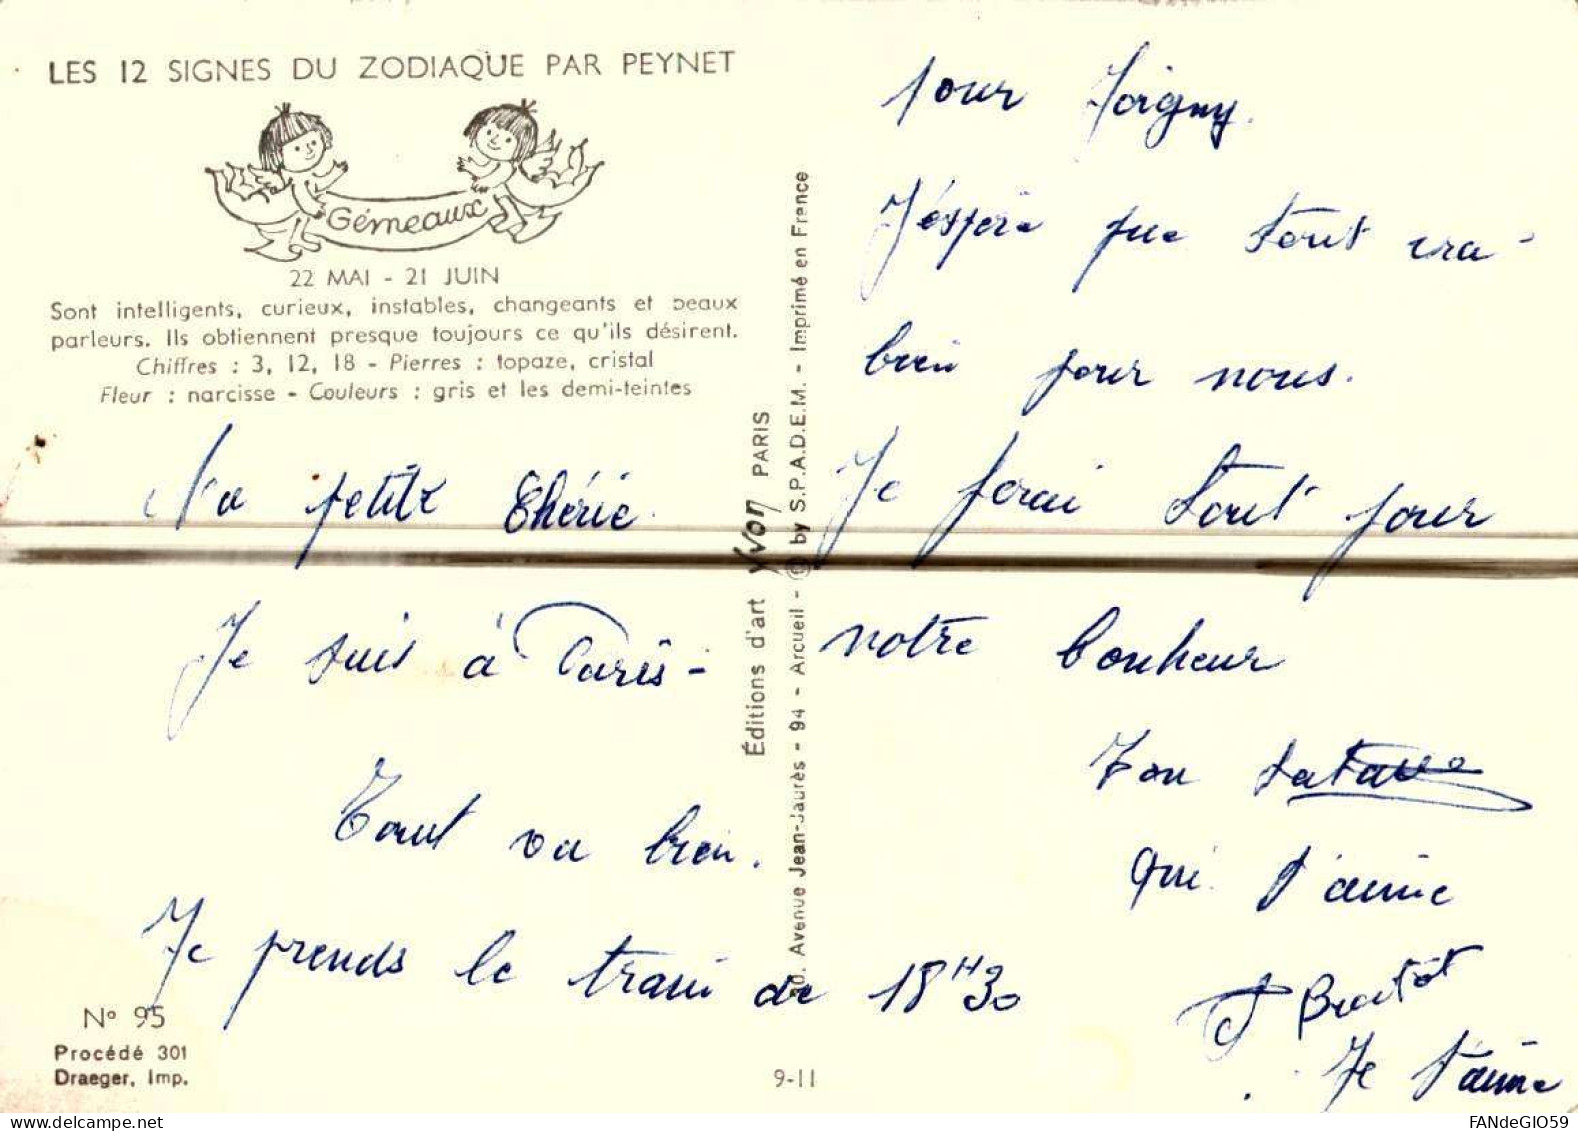 LES 12 SIGNES DU ZODIAQUE PAR PEYNET
Gémeaux
22 MAI - 21 JUIN
Sont intelligents, curieux, instables, changeants et beaux
parleurs. Ils obtiennent presque toujours ce qu'ils désirent.
Chiffres : 3, 12, 18 - Pierres : topaze, cristal
Fleur : narcisse - Couleurs : gris et les demi-teintes
Ma petite Chérie
Je suis à Paris -
Tout va bien.
Je prends le train de 18H30
N° 95
Procédé 301
Draeger, Imp.
Éditions d'art Yvon PARIS
Avenue Jean-Jaurès - 94 - Arcueil - © by S.P.A.D.E.M. - Imprimé en France
9-11
pour Joigny.
J'éspère que tout ira
bien pour nous.
Je ferai tout pour
notre bonheur
Ton
qui t'aime
Je t'aime
FANdeGIO59